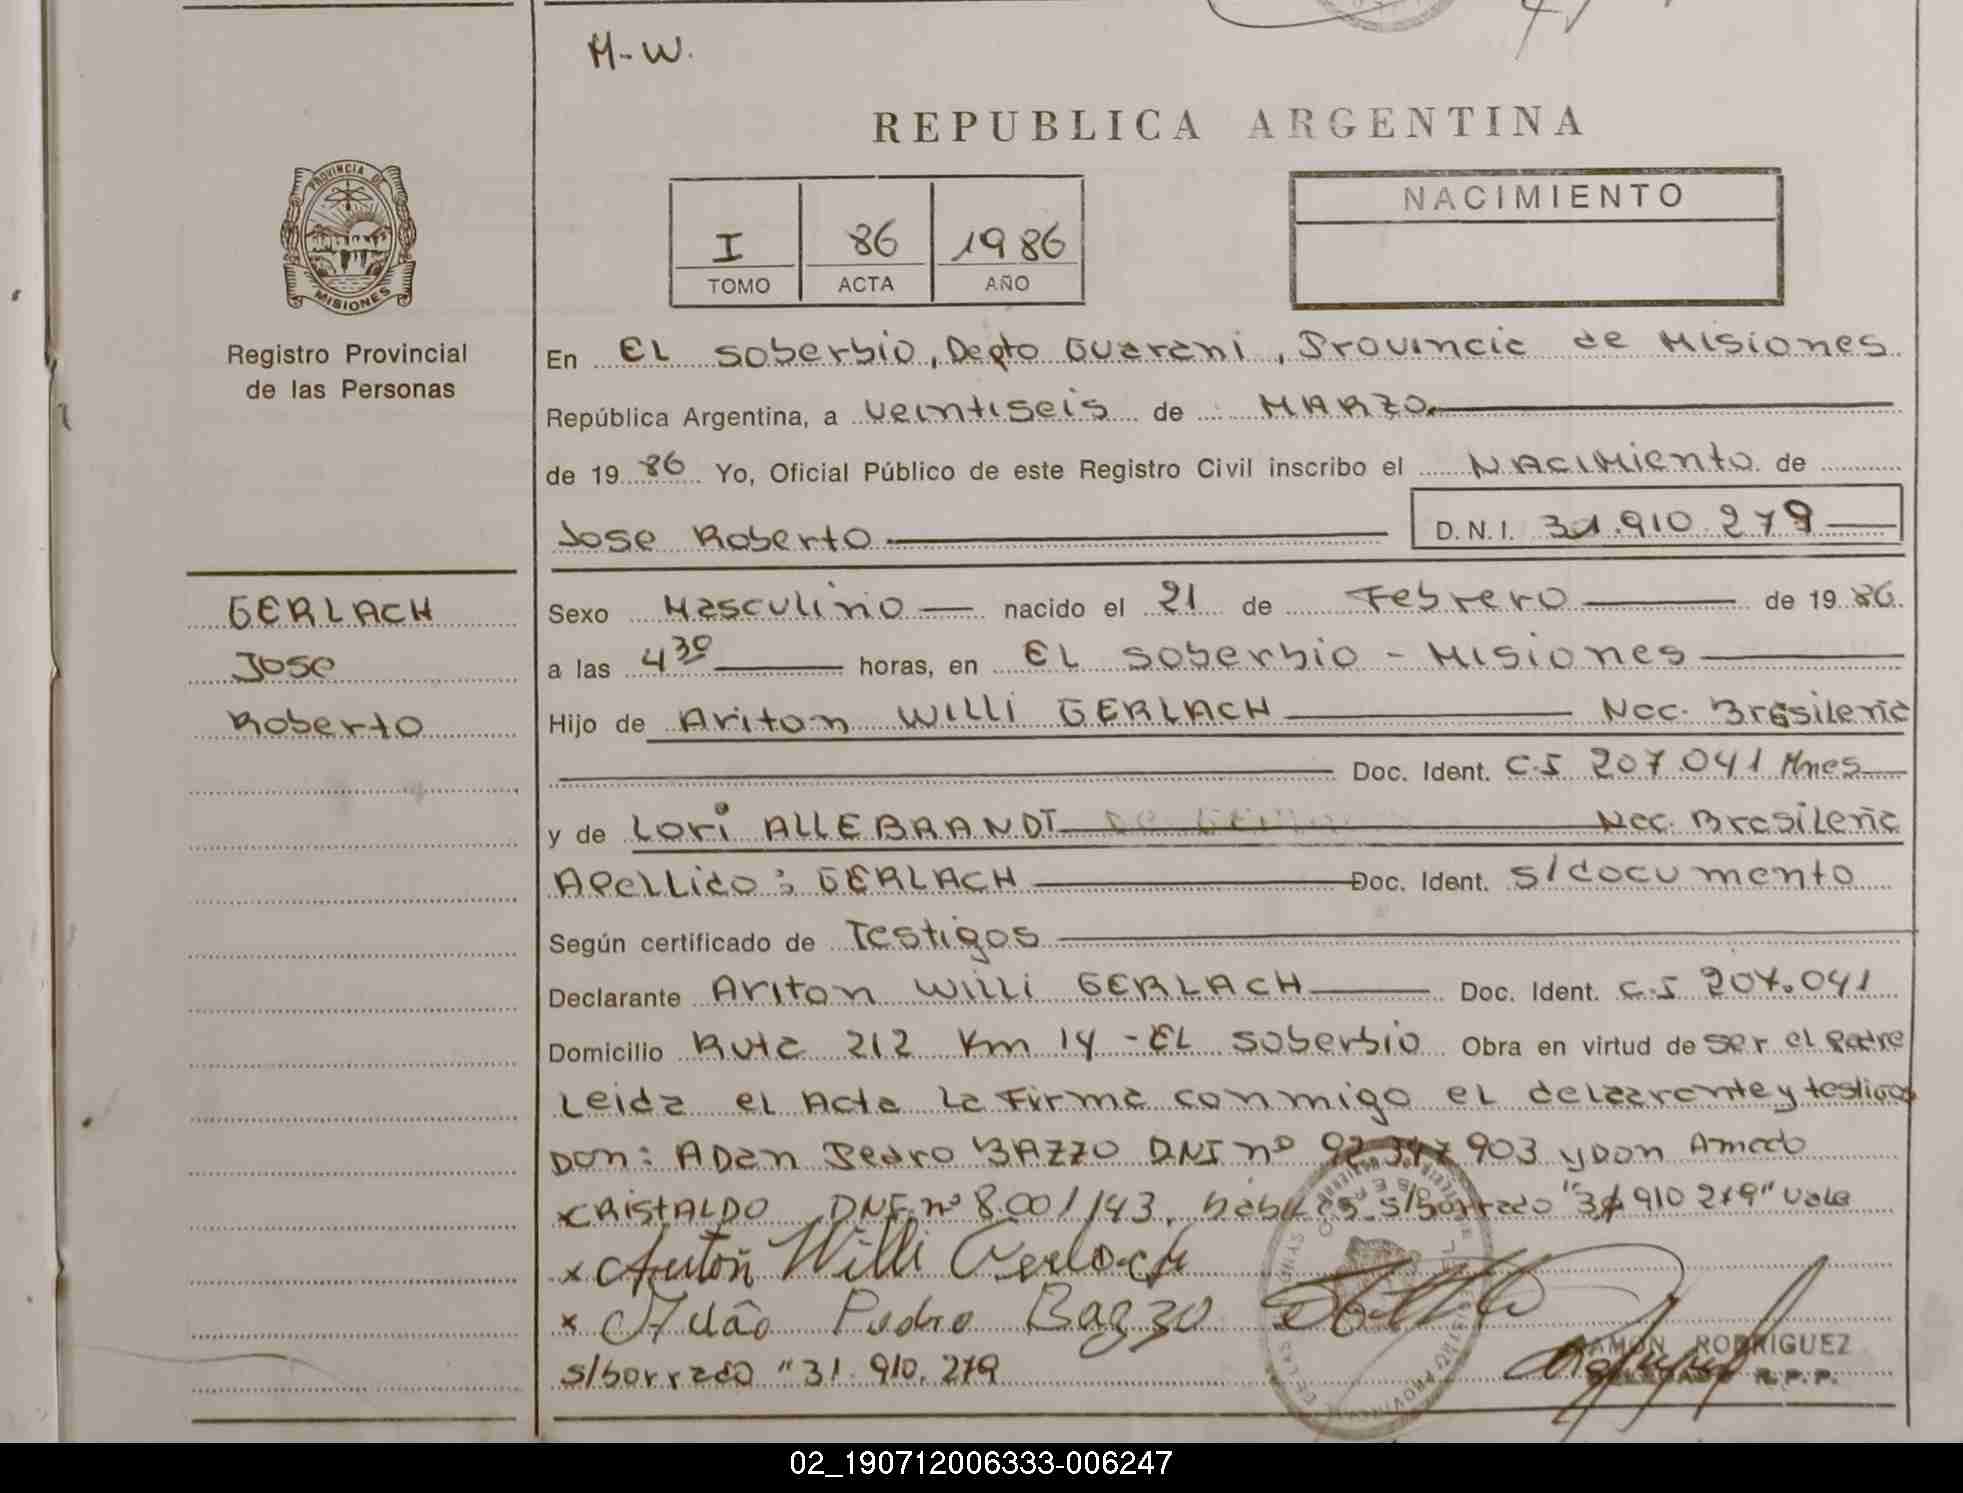 M-W.
REPUBLICA ARGENTINA
PROVINCIA DE
MISIONES
Registro Provincial
de las Personas
I 86 1986
TOMO ACTA AÑO
NACIMIENTO
En EL Soberbio, Depto Guarani, Provincia de Misiones
República Argentina, a veintiseis de MARZO.
de 19 86 Yo, Oficial Público de este Registro Civil inscribo el NACIMiento de
Jose Roberto D.N.I. 31.910.279
GERLACH
Jose
Roberto
Sexo Masculino nacido el 21 de Febrero de 19 86.
a las 4 30 horas, en EL Soberbio - Misiones
Hijo de Ariton WILLI GERLACH Nac. Brasileña
Doc. Ident. C.I 207.041 Mnes
y de Lori ALLEBRANDT Nac. Brasileña
Apellido: GERLACH Doc. Ident. s/documento
Según certificado de Testigos
Declarante Ariton Willi GERLACH Doc. Ident. C.I 207.041
Domicilio Ruta 212 Km 14 - EL Soberbio Obra en virtud de ser el padre
Leida el Acta La Firma conmigo el y testigos
Don: ADan Pedro BAZZO DNI nº 903 y Don
CRISTALDO DNI nº 8.001.143, s/borrado "31 910 279" vale
x Ariton Willi Gerlach
x Adão Pedro Bazzo
s/borrado "31.910.279
RAMON RODRIGUEZ
DELEGADO R.P.P.
02_190712006333-006247